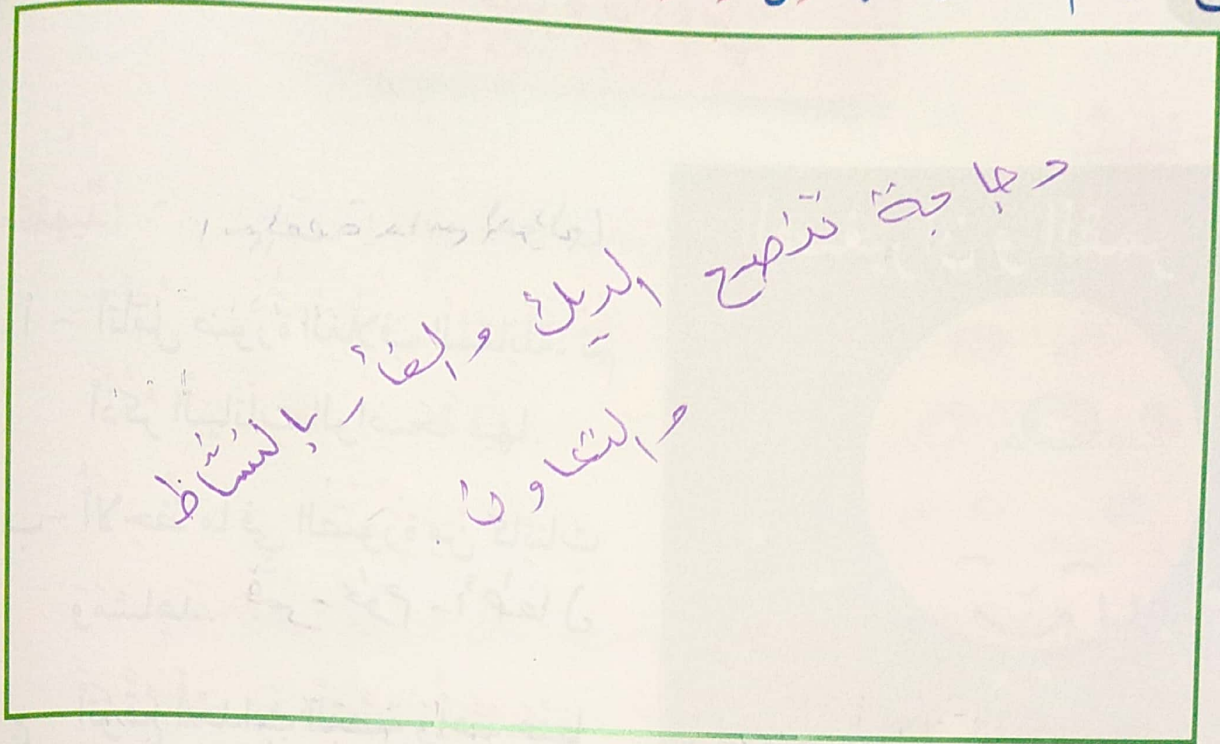 دجاجة تنصح الديك والفأر بالنشاط
والتعاون.